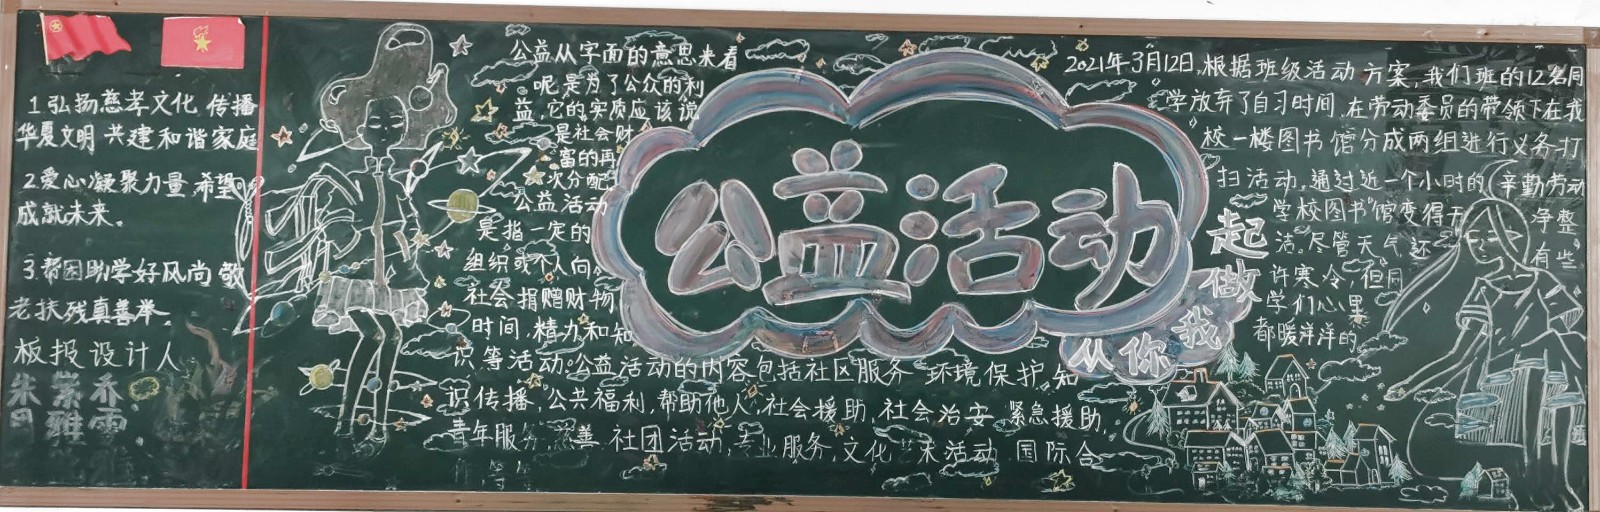 1弘扬慈孝文化 传播
华夏文明 共建和谐家庭
2爱心凝聚力量 希望
成就未来。
3帮困助学好风尚 敬
老扶残真善举。
板报设计人
公益从字面的意思来看
呢是为了公众的利
益,它的实质应该说
是社会财
富的再
次分配
公益活动
是指一定的
组织或个人向
社会捐赠财物
时间,精力和知
识等活动。公益活动的内容包括社区服务 环境保护,知
识传播,公共福利,帮助他人,社会援助,社会治安 紧急援助,
青年服务,慈善 社团活动,专业服务,文化艺术活动 国际合
公益活动
从你我
做
起
2021年3月12日,根据班级活动方案,我们班的12名同
学放弃了自习时间,在劳动委员的带领下在我
校一楼图书馆分成两组进行义务打
扫活动,通过近一个小时的辛勤劳动
学校图书馆变得干净整
洁.尽管天气还有些
许寒冷,但同
学们心里
都暖洋洋的